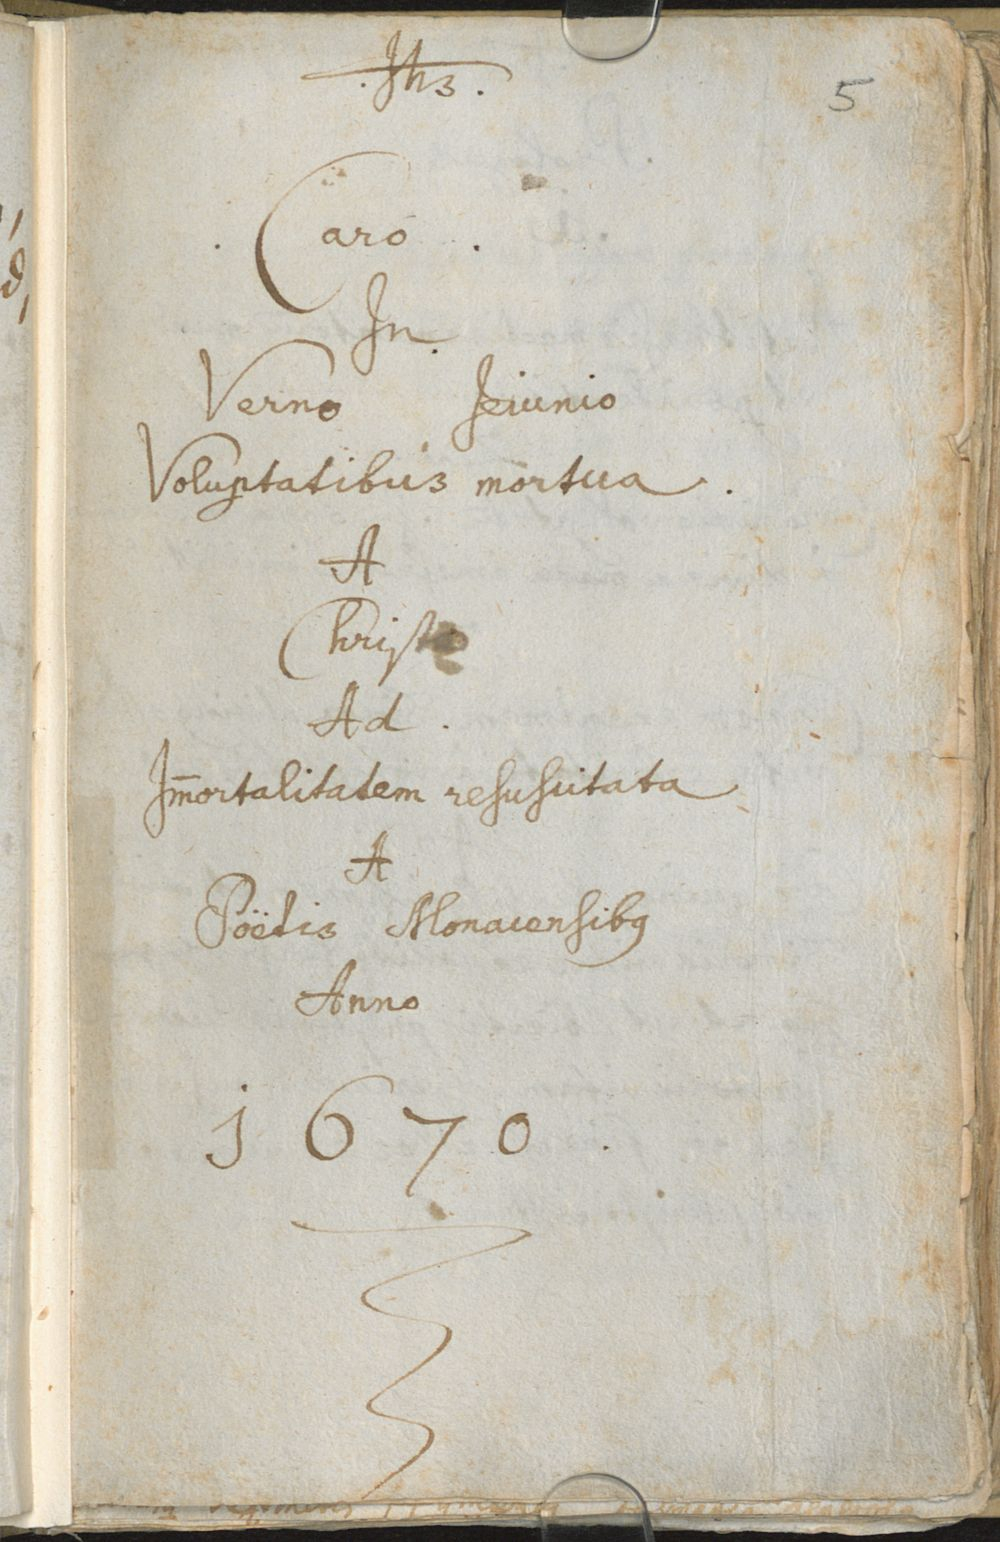 .Jhs. 5
. Caro .
In.
Verno Jeiunio
Voluptatibus mortua .
A
Christo
Ad .
Im̄ortalitatem resuscitata
A
Poëtis Monacensibꝰ
Anno
1670.